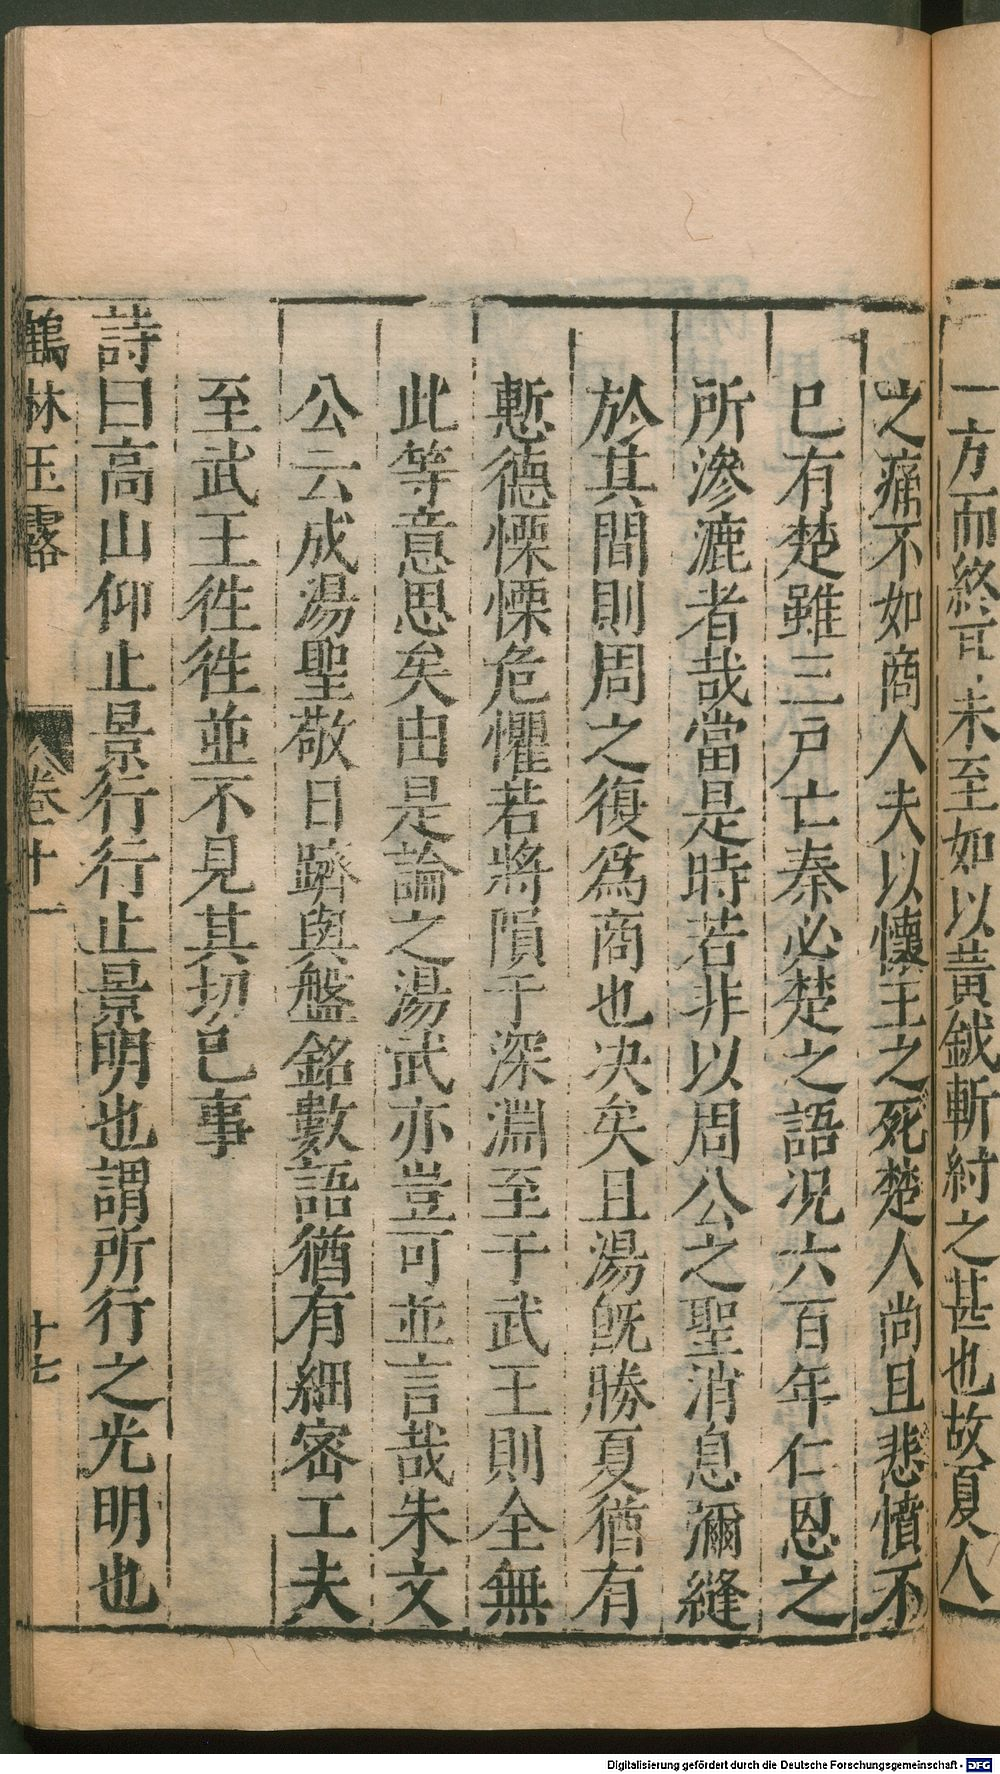 一方而終不 未至如以黃鉞斬紂之甚也故夏人
之痛不如商人夫以懷王之死楚人尚且悲憤不
已有楚雖三戸亡秦必楚之語况六百年仁恩之
所滲漉者哉當是時若非以周公之聖消息彌縫
於其間則周之復爲商也决矣且湯旣勝夏猶有
慙德慄慄危懼若將隕于深淵至于武王則全無
此等意思矣由是論之湯武亦豈可並言哉朱文
公云成湯聖敬日躋與盤銘數語猶有細密工夫
至武王徃徃並不見其切已事
詩曰高山仰止景行行止景明也謂所行之光明也
鶴林玉露 卷十一 十七
Digitalisierung gefördert durch die Deutsche Forschungsgemeinschaft - DFG